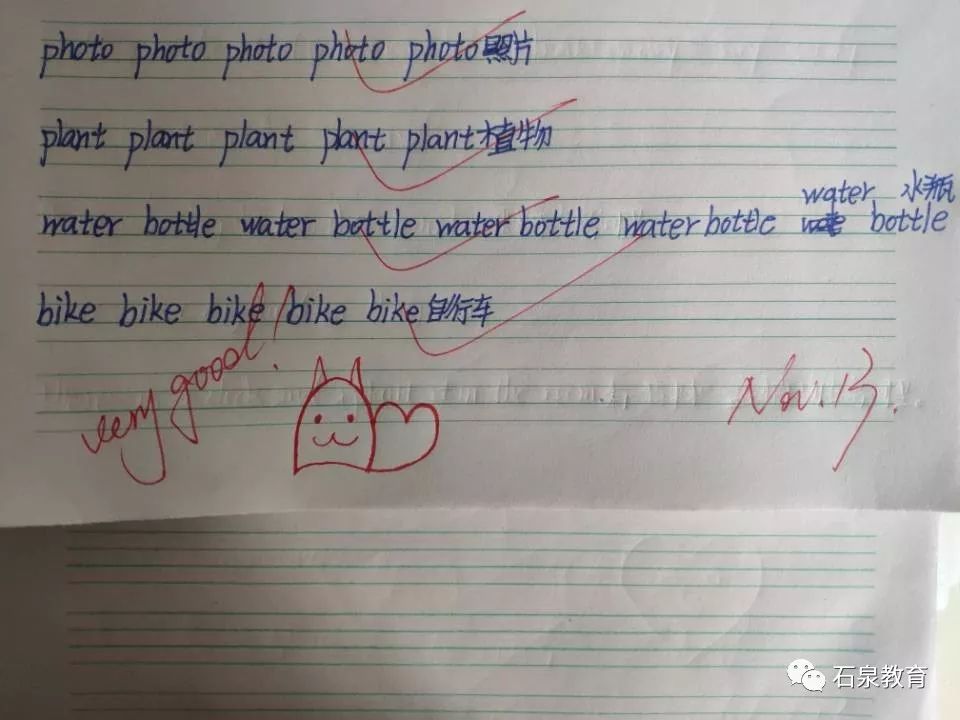 photo photo photo photo photo 照片
plant plant plant plant plant 植物
water bottle water bottle water bottle water bottle water bottle 水瓶
bike bike bike bike bike 自行车
very good!
Nov. 13.
石泉教育